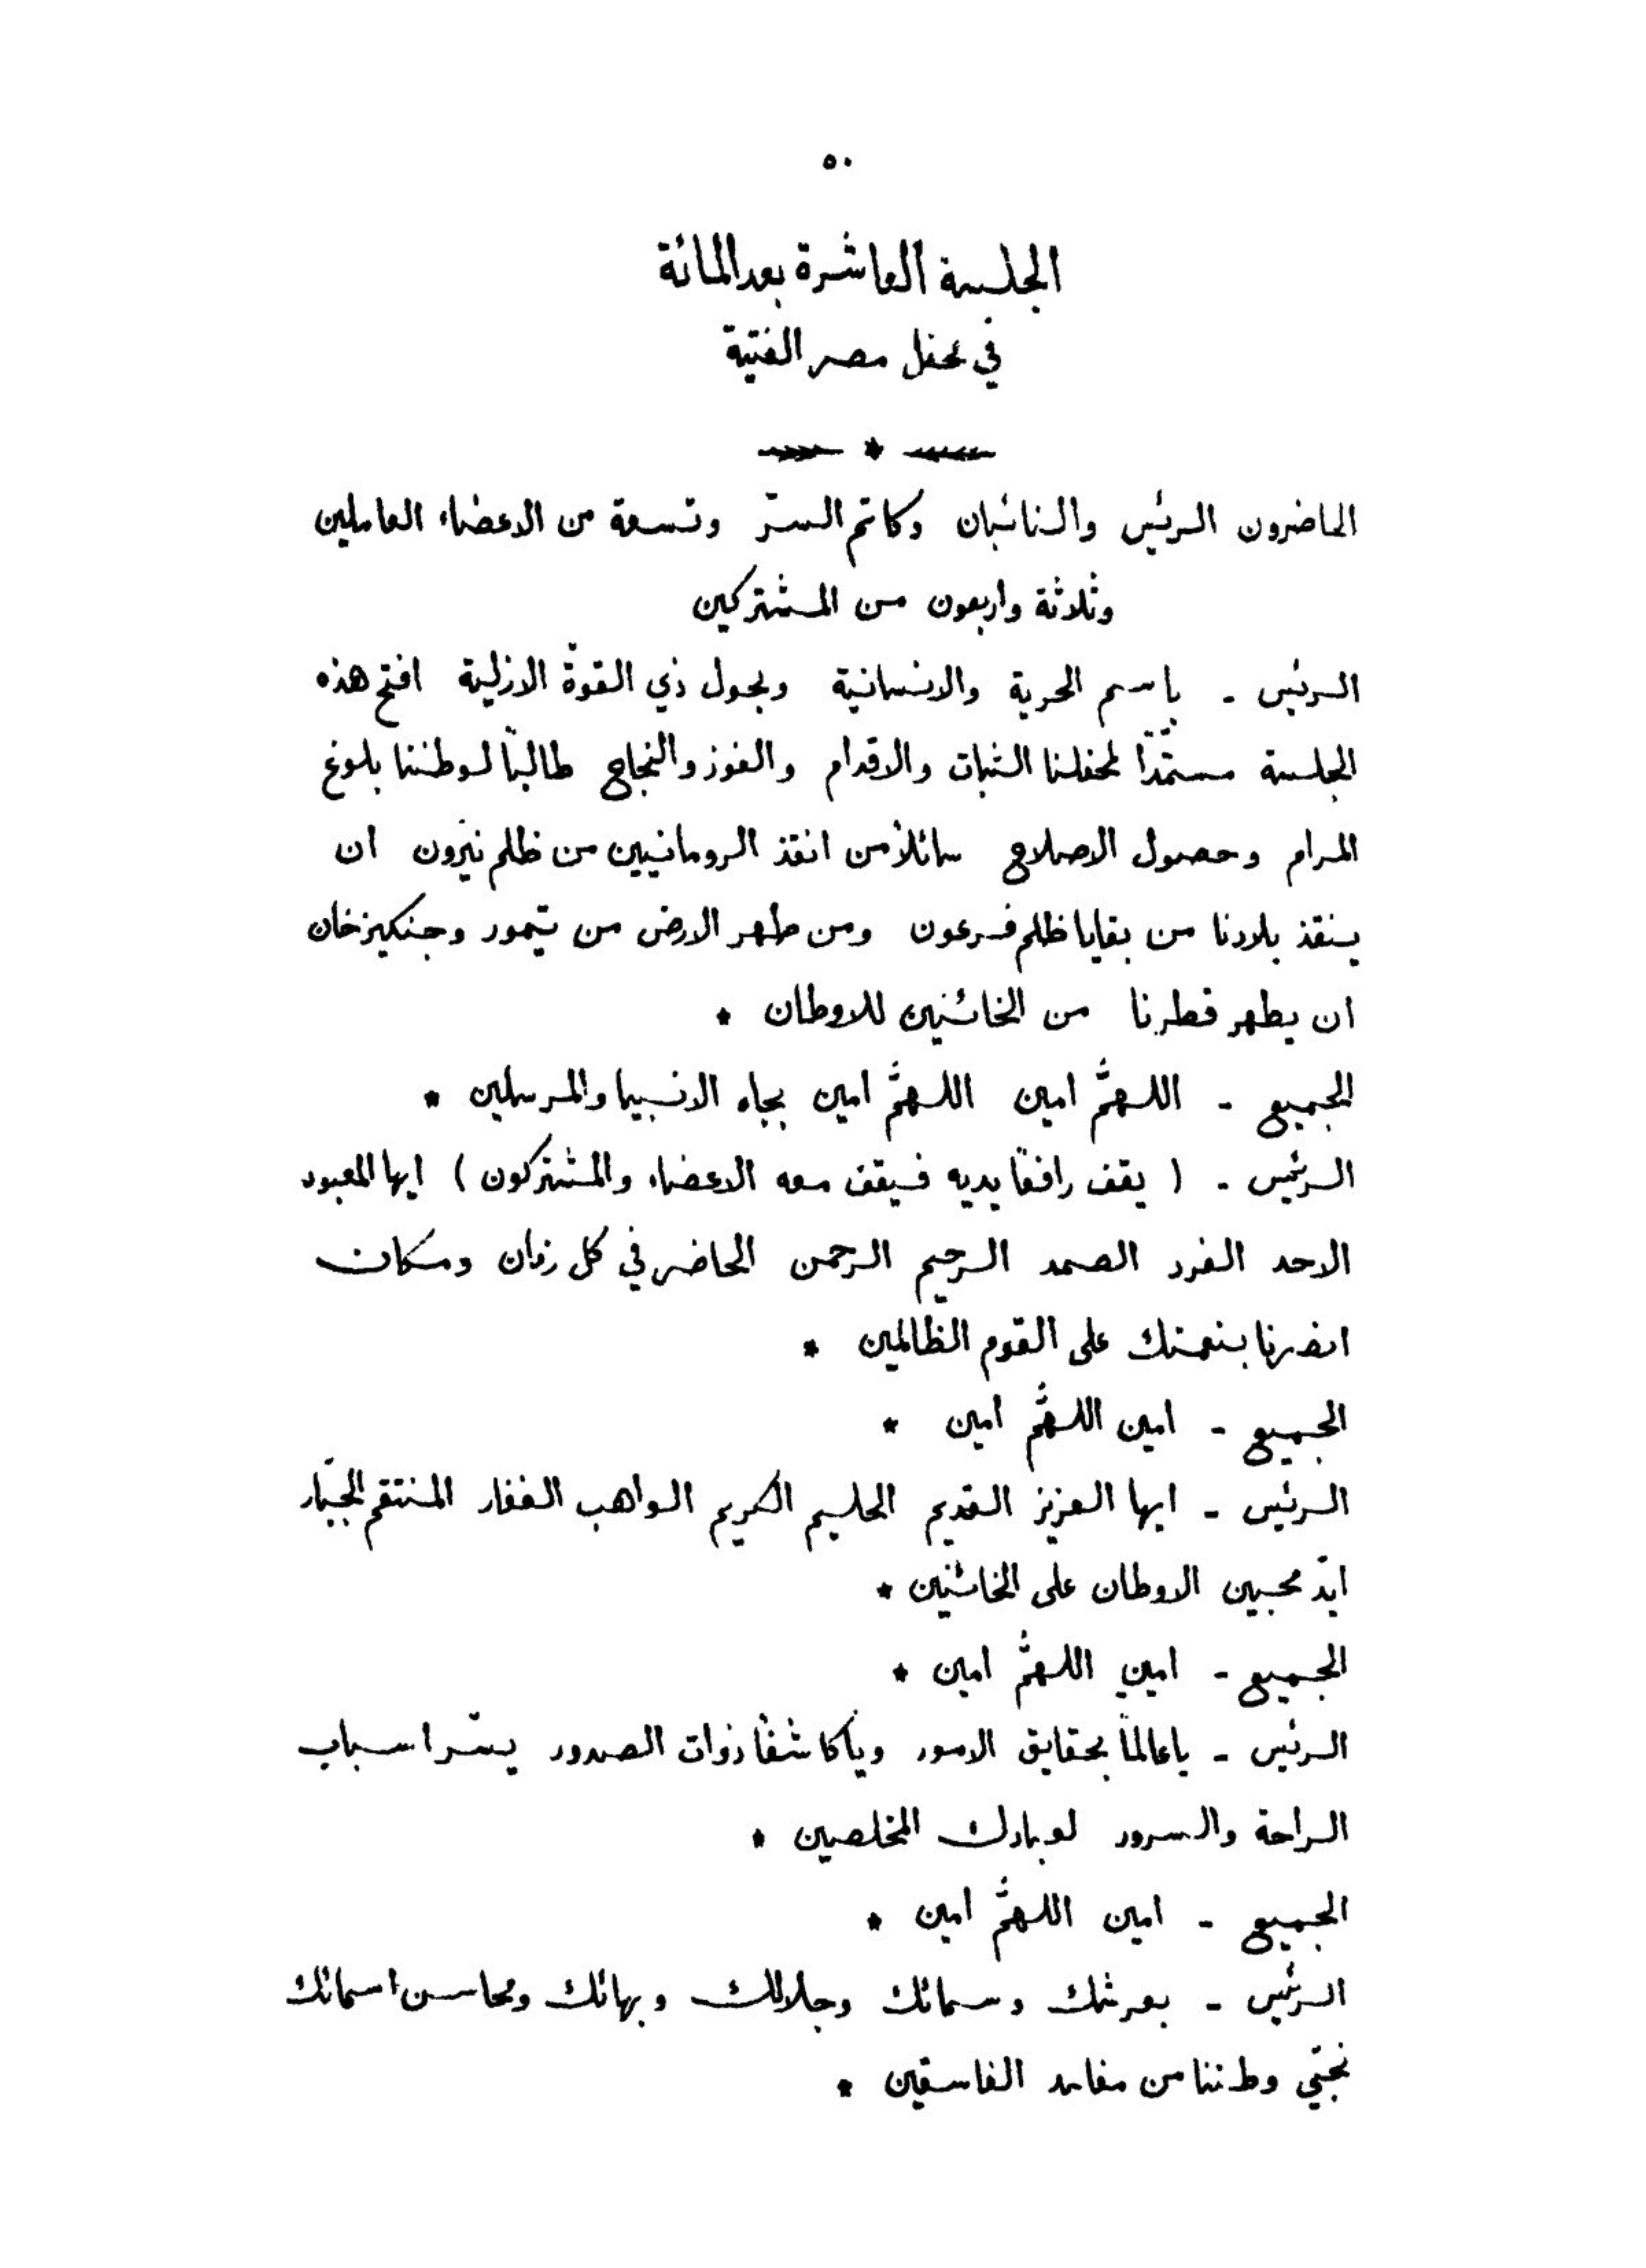 ٥٠
الجلسة العاشرة بعد المائة
في محفل مصر الفتية
الحاضرون الرئيس والنائبان وكاتم السرّ وتسعة من الاعضاء العاملين
وثلاثة واربعون من المشتركين
الرئيس - باسم الحرية والانسانية وبحول ذي القوّة الازلية افتح هذه
الجلسة مستمّدًا لمحفلنا الثبات والاقدام والفوز والنجاح طالبًا لوطننا بلوغ
المرام وحصول الاصلاح سائلاً من انقذ الرومانيين من ظلم نيرون ان
ينقذ بلادنا من بقايا ظلم فرعون ومن طهر الارض من تيمور وجنكيزخان
ان يطهر قطرنا من الخائنين للاوطان *
الجميع - اللهمَّ امين اللهمَّ امين بجاه الانبيا والمرسلين *
الرئيس - ( يقف رافعًا يديه فيقف معه الاعضاء والمشتركون ) ايها المعبود
الاحد الفرد الصمد الرحيم الرحمن الحاضر في كل زمان ومكان
انصرنا بنعمتك على القوم الظالمين *
الجميع - امين اللهمَّ امين *
الرئيس - ايها العزيز القديم الحليم الكريم الواهب الغفار المنتقم الجبّار
ايّد محبين الاوطان على الخائنين *
الجميع - امين اللهمَّ امين *
الرئيس - ياعالمًا بحقايق الامور وياكاشفًا ذوات الصدور يسّر اسباب
الراحة والسرور لعبادك المخلصين *
الجميع - امين اللهمَّ امين *
الرئيس - بعرشك وسمائك وجلالك وبهائك ومحاسن اسمائك
نجّي وطننا من مفاسد الفاسقين *